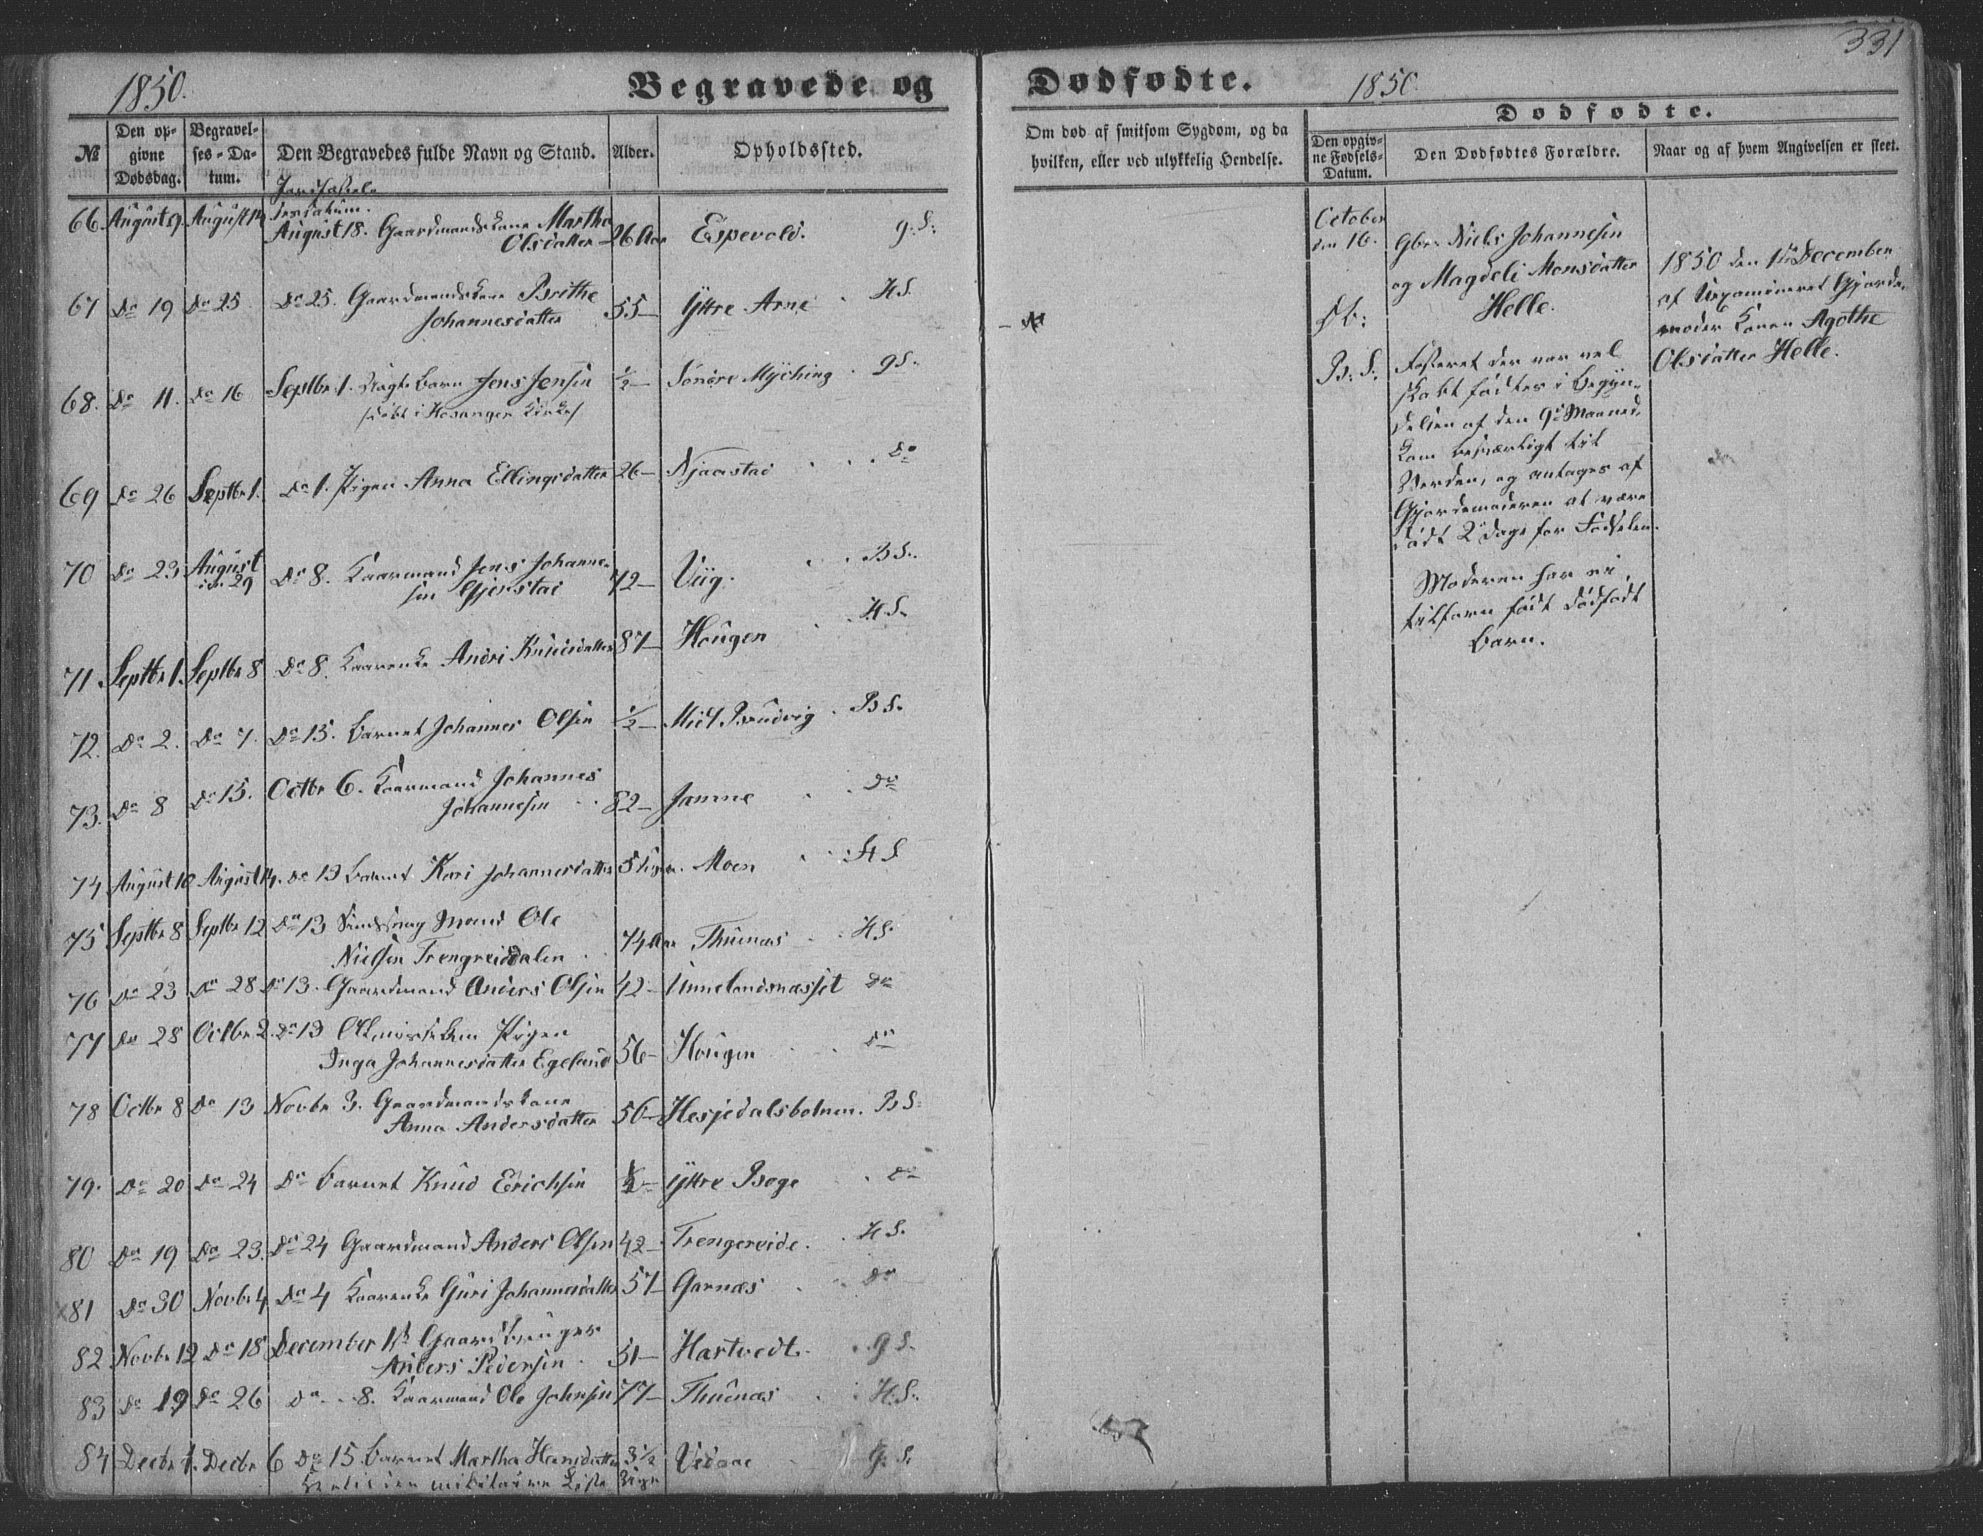 331
1850.
Begravede og
Dødfødte.
1850.
Dødfødte.
№
Den opgivne Dødsdag.
Begravelses-Datum.
Den Begravedes fulde Navn og Stand.
Alder.
Opholdssted.
Om død af smitsom Sygdom, og da
hvilken, eller ved ulykkelig Hendelse.
Den opgivne Fødsels-Datum.
Den Dødfødtes Forældre.
Naar og af hvem Angivelsen er skeet.
Jordfæstelsesdatum.
66. August 9. August 14 August 18. Gaardmandskone Martha
Olsdatter 26 Aar Espevold. g. S.
67 Do 19 Do 25 Do 25. Gaardmandskone Brithe
Johannesdatter 55 Yttre Arne H S.
68. Do 11. Do 16 Septbr 1. Barn Jens Jensen ½ Søndre Mjelding g S.
døbt i Hosanger Kirke
69 Do 26 Septbr 1. Do 1. Pigen Anna Ellingsdatter 26 Njaastad Do
70 Do 23 August den 29 Do 8. Kaarmand Jens Johannesen
Gjerstad 72 Viig. B S.
71. Septbr 1. Septbr 8 Do 8. Kaarenke Andri Knudsdatter 87 Hougen H S.
72. Do 2. Do 7. Do 15. Barnet Johannes Olsen ½ Midt Brudvig B S.
73. Do 8 Do 15. Octbr 6. Kaarmand Johannes
Johannesen 82 Jamne Do
74 August 10 August 14. Do 13 Barnet Kari Johannesdatter 5 Uger. Moen H S
75 Septbr 8 Septbr 12 Do 13 Mand Ole
Nielsen Trengreiddalen 74 Aar Thunæs H S.
76 Do 23 Do 28 Do 13. Gaardmand Anders Olsen 42 Unnelandsnæsset Do
77 Do 28 Octbr 2. Do 13 Pigen
Inga Johannesdatter Egeland 56 Hougen Do
78 Octbr 8 Do 13 Novbr 3. Gaardmandskone
Anna Andersdatter 56 Hesjedalsbotnen. B S.
79. Do 20 Do 24 Do Barnet Knud Erichsen ½ Yttre Boge Do
80 Do 19 Do 23. Do 24 Gaardmand Anders Olsen 42 Trengereide. H S.
81 Do 30 Novbr 4 Do 4 Kaarenke Guri Johannesdatter 57 Garnæs Do
82 Novbr 12 Do 18 December 1st Gaardbruger
Anders Pedersen 51 Hartvedt. g S.
83 Do 19 Do 26 Do 8. Kaarmand Ole Johnsen 77 Thunæs H. S.
84 Decbr 1. Decbr 6 Do 15. Barnet Martha Hansdatter 3½ Uger Vedaae G. S.
October
den 16.
Gbr. Niels Johannesen
og Magdeli Monsdatter
Helle.
B. S.
Fosteret der var vel
skabt fødtes i Begyndelsen
af den 9de Maaned,
kom besværligt til
Verden, og antages af
Gjordemoderen at være
død 2 Dage før Fødselen.
Moderen har ei
tilforn født dødfødt
Barn.
1850 den 1ste December
af Uexamineret Gjordemoder
Konen Agothe
Olsdatter Helle.